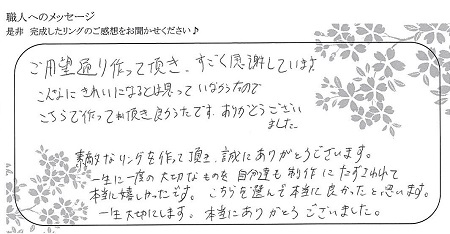 職人へのメッセージ
是非 完成したリングのご感想をお聞かせください♪
ご用望通り作って頂き、すごく感謝しています。
こんなにきれいになるとは思っていなかったので
こちらで作って頂き良かったです。ありがとうござい
ました
素敵なリングを作って頂き、誠にありがとうございます。
一生に一度の大切なものを自分達も制作にたずさわれて
本当に嬉しかったです。こちらを選んで本当に良かったと思います。
一生大切にします。本当にありがとうございました。